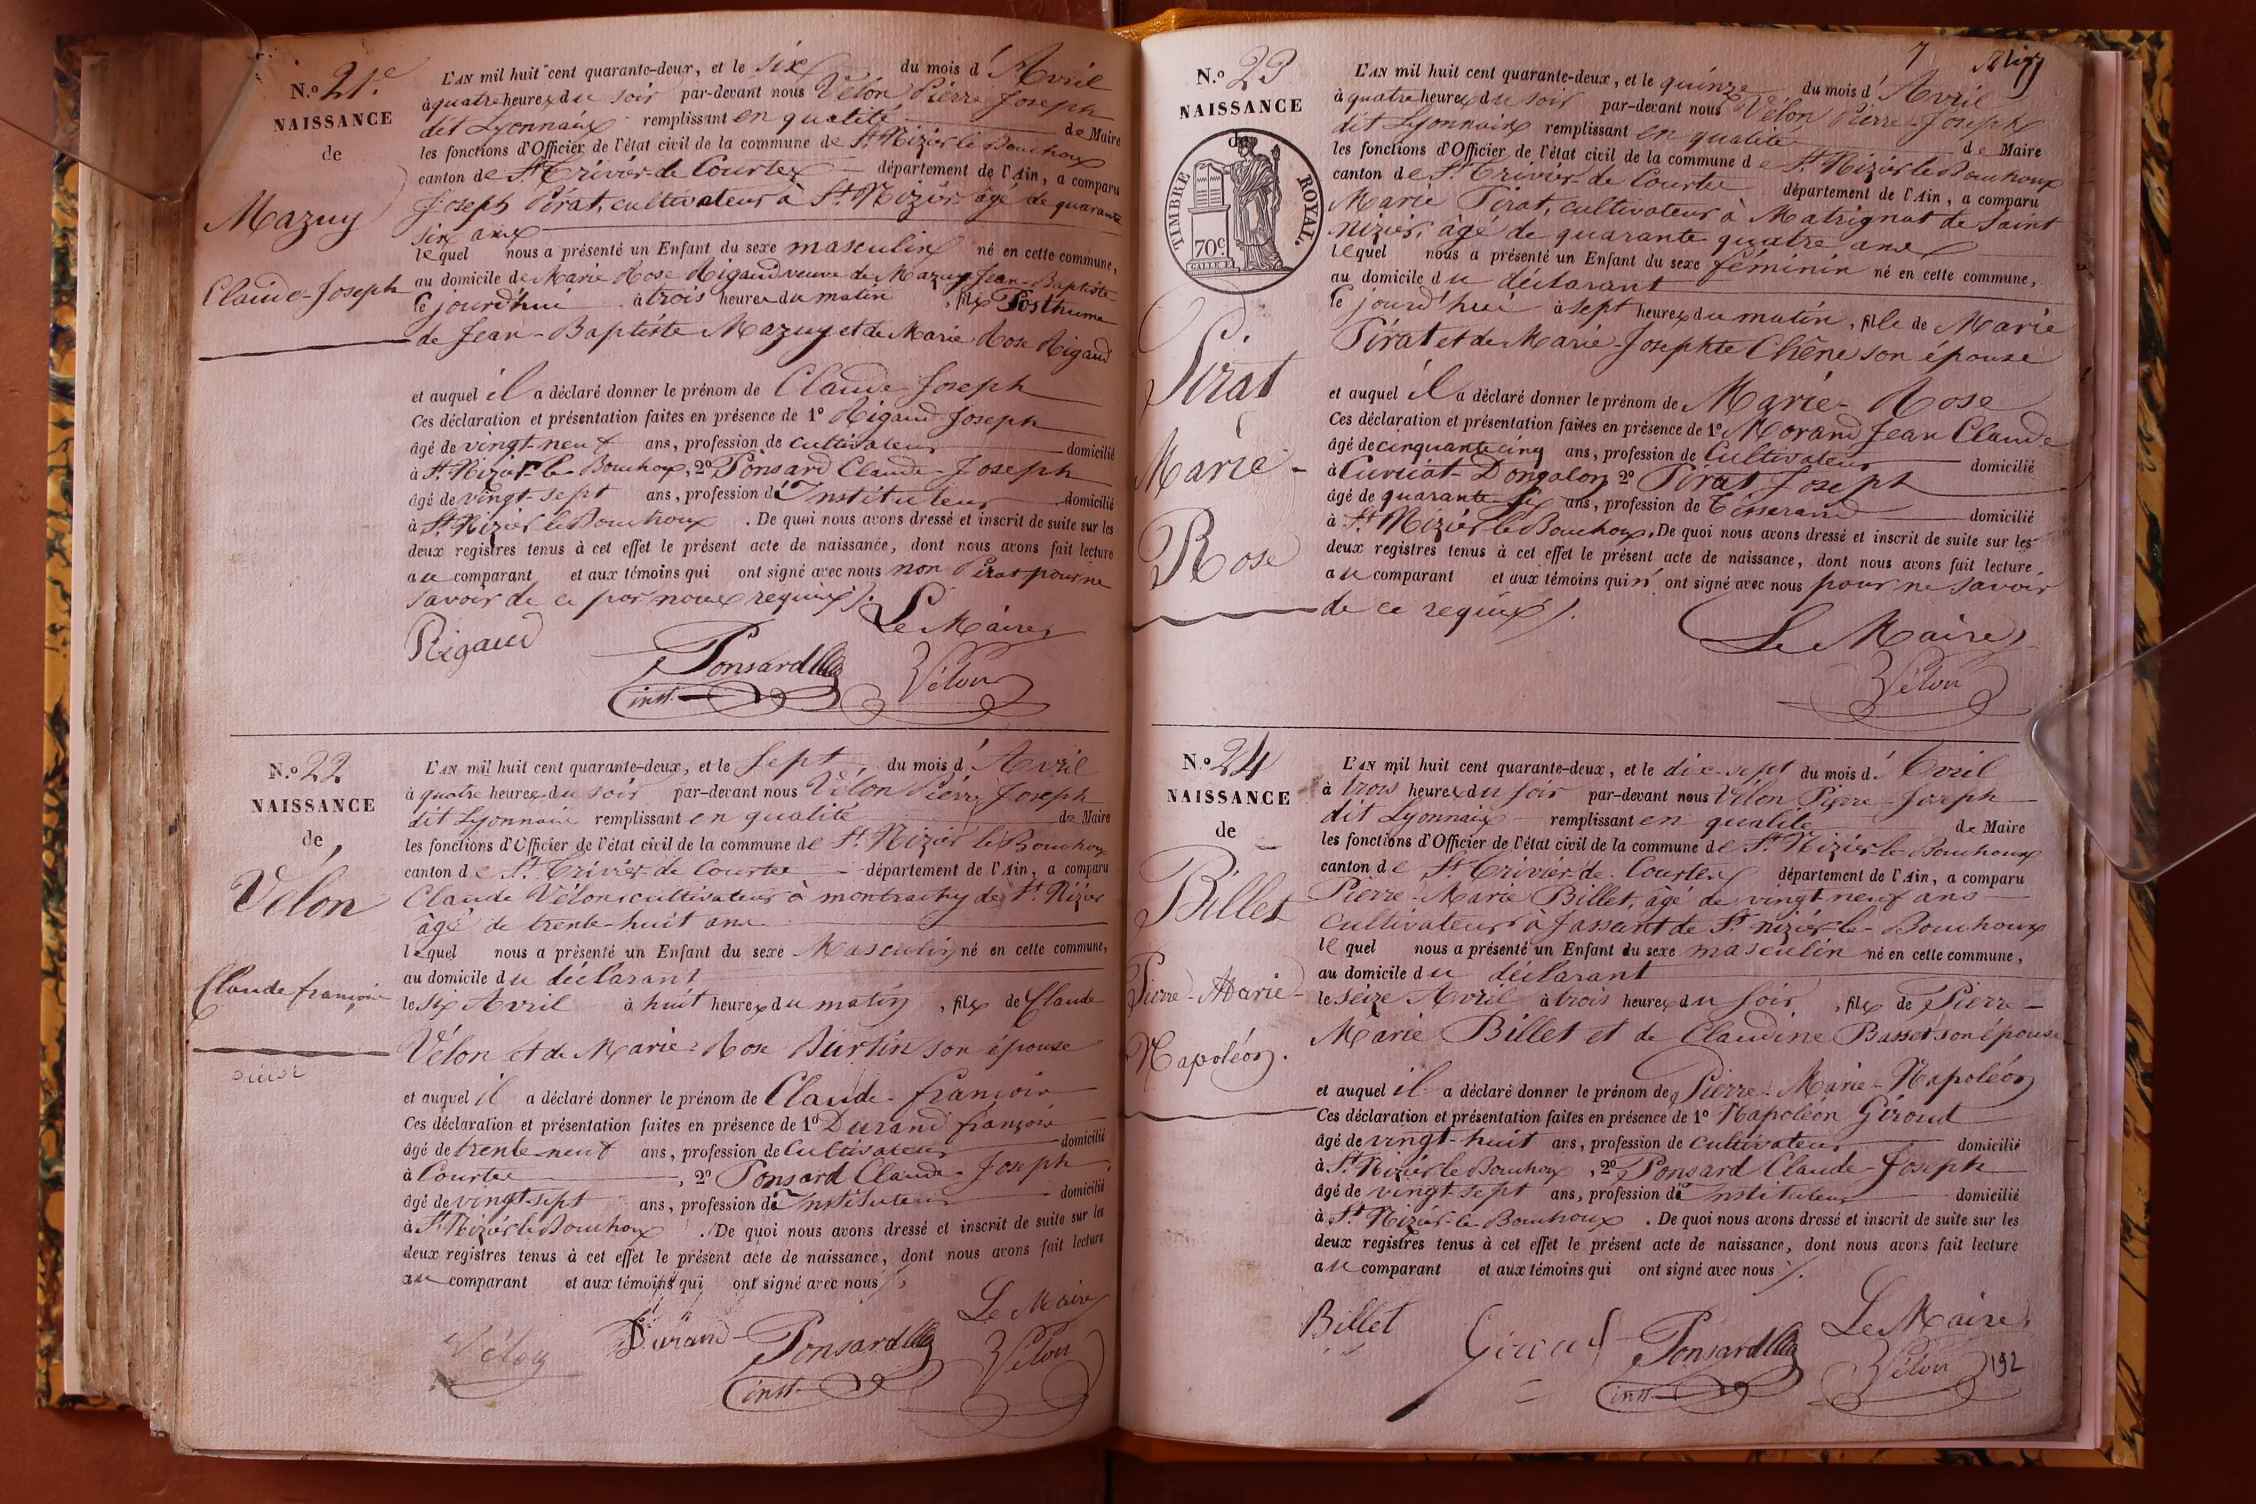 N.º 21.e
NAISSANCE
de
Mazuy
Claude-Joseph
L'AN mil huit cent quarante-deux, et le six du mois d'Avril
à quatre heures du soir par-devant nous Vélon Pierre Joseph
dit Lyonnaix remplissant en qualité de Maire
les fonctions d'Officier de l'état civil de la commune de St. Nizier le Bouchoux
canton de St. Trivier de Courtex département de l'Ain, a comparu
Joseph Pirat, cultivateur à St. Nizier âgé de quarante
six ans
lequel nous a présenté un Enfant du sexe masculin né en cette commune,
au domicile de Marie Rose Rigaud veuve de Mazuy Jean-Baptiste
le jourd'hui à trois heures du matin, fils Posthume
de Jean-Baptiste Mazuy et de Marie Rose Rigaud
et auquel il a déclaré donner le prénom de Claude Joseph
Ces déclaration et présentation faites en présence de 1º Rigaud Joseph
âgé de vingt-neuf ans, profession de cultivateur domicilié
à St. Nizier-le Bouchoux, 2º Ponsard Claude-Joseph
âgé de vingt-sept ans, profession d'Instituteur domicilié
à St. Nizier le Bouchoux. De quoi nous avons dressé et inscrit de suite sur les
deux registres tenus à cet effet le présent acte de naissance, dont nous avons fait lecture
au comparant et aux témoins qui ont signé avec nous non Pirat pour ne
savoir de ce par nous requis /.
Le Maire
Rigaud
Ponsard
inst.
Vélon
N.º 22
NAISSANCE
de
Vélon
Claude françois
L'AN mil huit cent quarante-deux, et le Sept du mois d'Avril
à quatre heures du soir par-devant nous Vélon Pierre Joseph
dit Lyonnaix remplissant en qualité de Maire
les fonctions d'Officier de l'état civil de la commune de St. Nizier le Bouchoux
canton de St. Trivier de Courtex département de l'Ain, a comparu
Claude Vélon cultivateur à montrachy de St. Nizier
âgé de trente-huit ans
lequel nous a présenté un Enfant du sexe Masculin né en cette commune,
au domicile du déclarant
le six Avril à huit heures du matin, fils de Claude
Vélon et de Marie-Rose Burtin son épouse
et auquel il a déclaré donner le prénom de Claude-françois
Ces déclaration et présentation faites en présence de 1º Durand françois
âgé de trente-neuf ans, profession de Cultivateur domicilié
à Courtex, 2º Ponsard Claude-Joseph
âgé de vingt-sept ans, profession d'Instituteur domicilié
à St. Nizier le Bouchoux. De quoi nous avons dressé et inscrit de suite sur les
deux registres tenus à cet effet le présent acte de naissance, dont nous avons fait lecture
au comparant et aux témoins qui ont signé avec nous /.
Le Maire
Vélon
Durand
Ponsard
inst.
Vélon
7
N.º 23
NAISSANCE
de
TIMBRE ROYAL
70c.
Pirat
Marie-
Rose
L'AN mil huit cent quarante-deux, et le quinze du mois d'Avril
à quatre heures du soir par-devant nous Vélon Pierre-Joseph
dit Lyonnaix remplissant en qualité de Maire
les fonctions d'Officier de l'état civil de la commune de St. Nizier le Bouchoux
canton de St. Trivier-de Courtex département de l'Ain, a comparu
Marie Pirat, cultivateur à Matrignat de Saint
Nizier, âgé de quarante quatre ans
lequel nous a présenté un Enfant du sexe féminin né en cette commune,
au domicile du déclarant
le jourd'hui à sept heures du matin, fille de Marie
Pirat et de Marie-Josephte Chêne son épouse
et auquel il a déclaré donner le prénom de Marie-Rose
Ces déclaration et présentation faites en présence de 1º Morand Jean Claude
âgé de cinquante cinq ans, profession de Cultivateur domicilié
à Curciat-Dongalon, 2º Pirat Joseph
âgé de quarante six ans, profession de Tisserand domicilié
à St. Nizier le Bouchoux. De quoi nous avons dressé et inscrit de suite sur les
deux registres tenus à cet effet le présent acte de naissance, dont nous avons fait lecture
au comparant et aux témoins qui n'ont signé avec nous pour ne savoir
de ce requis /.
Le Maire
Vélon
N.º 24
NAISSANCE
de
Billet
Pierre-Marie-
Napoléon.
L'AN mil huit cent quarante-deux, et le dix-sept du mois d'Avril
à trois heures du soir par-devant nous Vélon Pierre-Joseph
dit Lyonnaix remplissant en qualité de Maire
les fonctions d'Officier de l'état civil de la commune de St. Nizier-le-Bouchoux
canton de St. Trivier-de-Courtex département de l'Ain, a comparu
Pierre-Marie Billet, âgé de vingt neuf ans
cultivateur à Jassant de St. nizier-le-Bouchoux
lequel nous a présenté un Enfant du sexe masculin né en cette commune,
au domicile du déclarant
le seize Avril à trois heures du soir, fils de Pierre-
Marie Billet et de Claudine Basset son épouse
et auquel il a déclaré donner le prénom de Pierre-Marie-Napoléon
Ces déclaration et présentation faites en présence de 1º Napoléon Giroud
âgé de vingt-huit ans, profession de cultivateur domicilié
à St. Nizier le Bouchoux, 2º Ponsard Claude-Joseph
âgé de vingt-sept ans, profession d'Instituteur domicilié
à St. Nizier-le Bouchoux. De quoi nous avons dressé et inscrit de suite sur les
deux registres tenus à cet effet le présent acte de naissance, dont nous avons fait lecture
au comparant et aux témoins qui ont signé avec nous /.
Le Maire
Billet
Giroud
Ponsard
inst.
Vélon
192